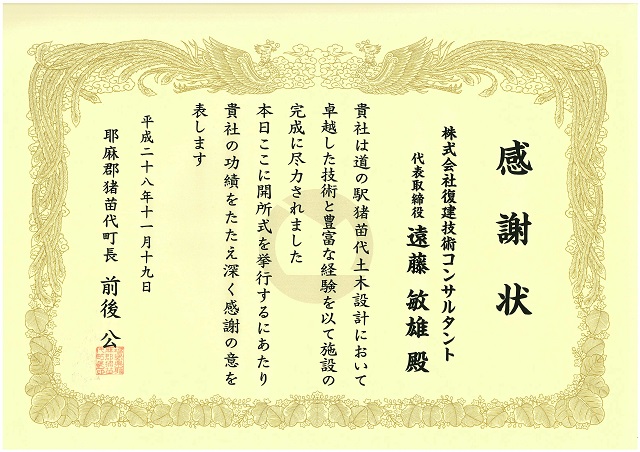 感謝状
株式会社復建技術コンサルタント
代表取締役 遠藤 敏雄 殿
貴社は道の駅猪苗代土木設計において
卓越した技術と豊富な経験を以て施設の
完成に尽力されました
本日ここに開所式を挙行するにあたり
貴社の功績をたたえ深く感謝の意を
表します
平成二十八年十一月十九日
耶麻郡猪苗代町長 前後 公